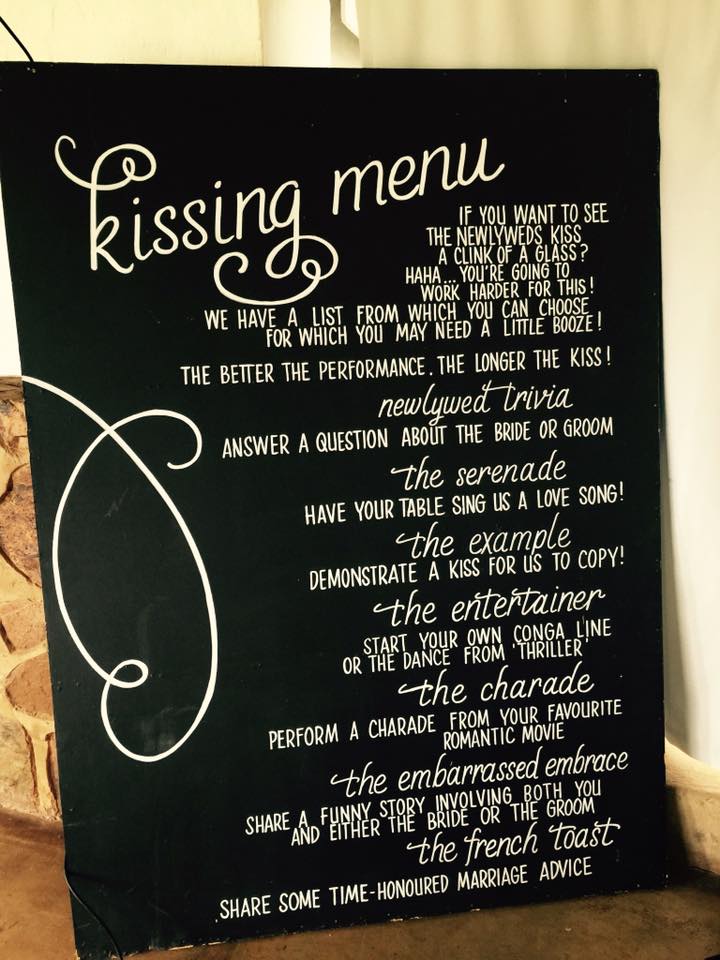 kissing menu
IF YOU WANT TO SEE
THE NEWLYWEDS KISS
A CLINK OF A GLASS?
HAHA... YOU'RE GOING TO
WORK HARDER FOR THIS!
WE HAVE A LIST FROM WHICH YOU CAN CHOOSE
FOR WHICH YOU MAY NEED A LITTLE BOOZE!
THE BETTER THE PERFORMANCE. THE LONGER THE KISS!
newlywed trivia
ANSWER A QUESTION ABOUT THE BRIDE OR GROOM
the serenade
HAVE YOUR TABLE SING US A LOVE SONG!
the example
DEMONSTRATE A KISS FOR US TO COPY!
the entertainer
START YOUR OWN CONGA LINE
OR THE DANCE FROM 'THRILLER'
the charade
PERFORM A CHARADE FROM YOUR FAVOURITE
ROMANTIC MOVIE
the embarrassed embrace
SHARE A FUNNY STORY INVOLVING BOTH YOU
AND EITHER THE BRIDE OR THE GROOM
the french toast
SHARE SOME TIME-HONOURED MARRIAGE ADVICE